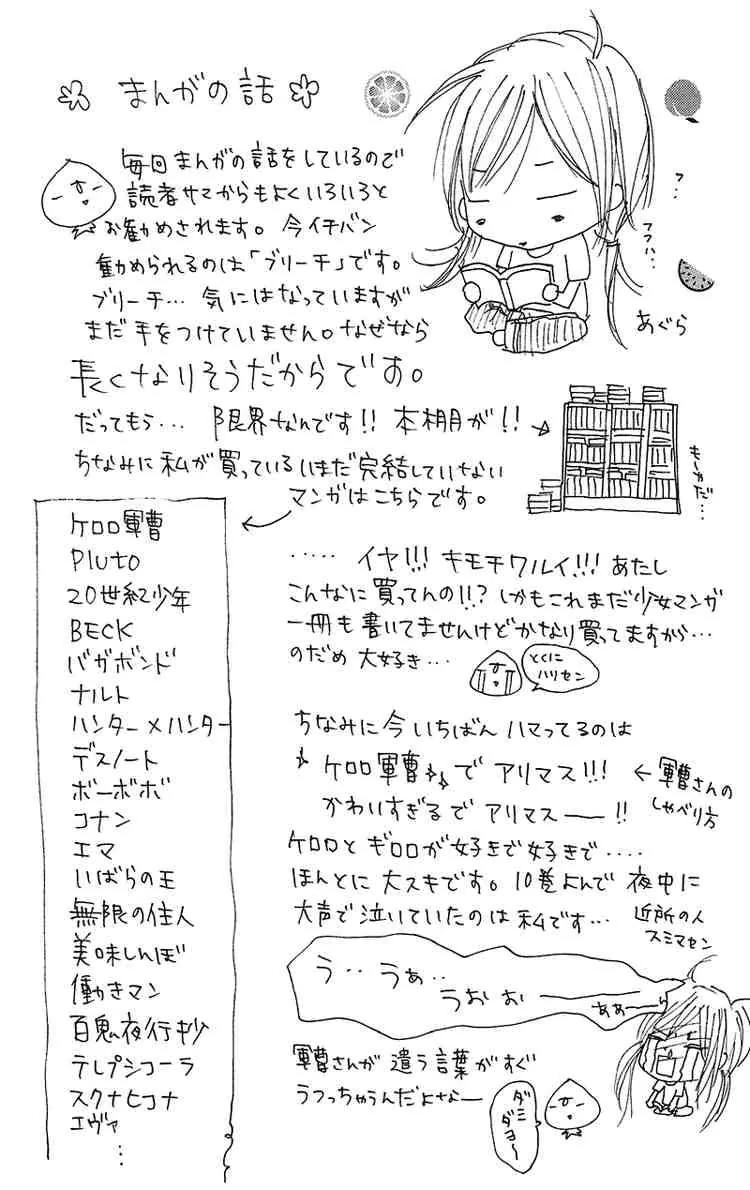 まんがの話
毎回まんがの話をしているので
読者サマからもよくいろいろと
お勧めされます。今イチバン
勧められるのは「ブリーチ」です。
ブリーチ… 気にはなっていますが
まだ手をつけていません。なぜなら
長くなりそうだからです。
だってもう… 限界なんです!! 本棚が!!
ちなみに私が買っているいまだ完結していない
マンガはこちらです。
フ…
フフハ…
あぐら
もーかだ…
ケロロ軍曹
Pluto
20世紀少年
BECK
バガボンド
ナルト
ハンター×ハンター
デスノート
ボーボボ
コナン
エマ
いばらの王
無限の住人
美味しんぼ
働きマン
百鬼夜行抄
テレプシコーラ
スクナヒコナ
エヴァ
⋮
..... イヤ!!! キモチワルイ!!! あたし
こんなに買ってんの!!? しかもこれまだ少女マンガ
一冊も書いてませんけどかなり買ってますから…
のだめ 大好き…
とくに
ハリセン
ちなみに今いちばんハマってるのは
ケロロ軍曹でアリマス!!!
かわいすぎるでアリマス——!!
←軍曹さんの
しゃべり方
ケロロとギロロが好きで好きで....
ほんとに大スキです。10巻よんで夜中に
大声で泣いていたのは私です…
近所の人
スミマセン
う‥うぁ‥
うおお——
ああ〜
軍曹さんが遣う言葉がすぐ
うつっちゃうんだよなー
ダミ
ダヨ〜